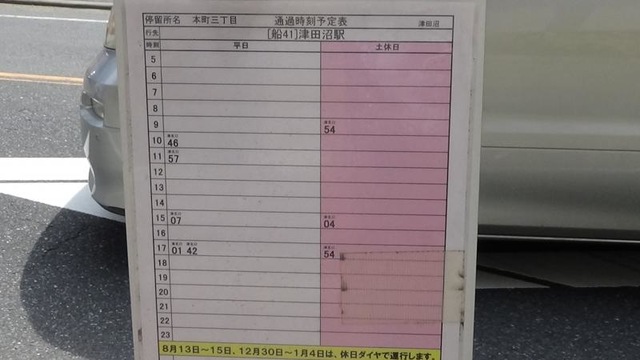 停留所名 本町三丁目 通過時刻予定表 津田沼
行先 [船41]津田沼駅
時刻 平日 土休日
5
6
7
8
9 54
10 46
11 57
12
13
14
15 07 04
16
17 01 42 54
18
19
20
21
22
23
8月13日～15日、12月30日～1月4日は、休日ダイヤで運行します。